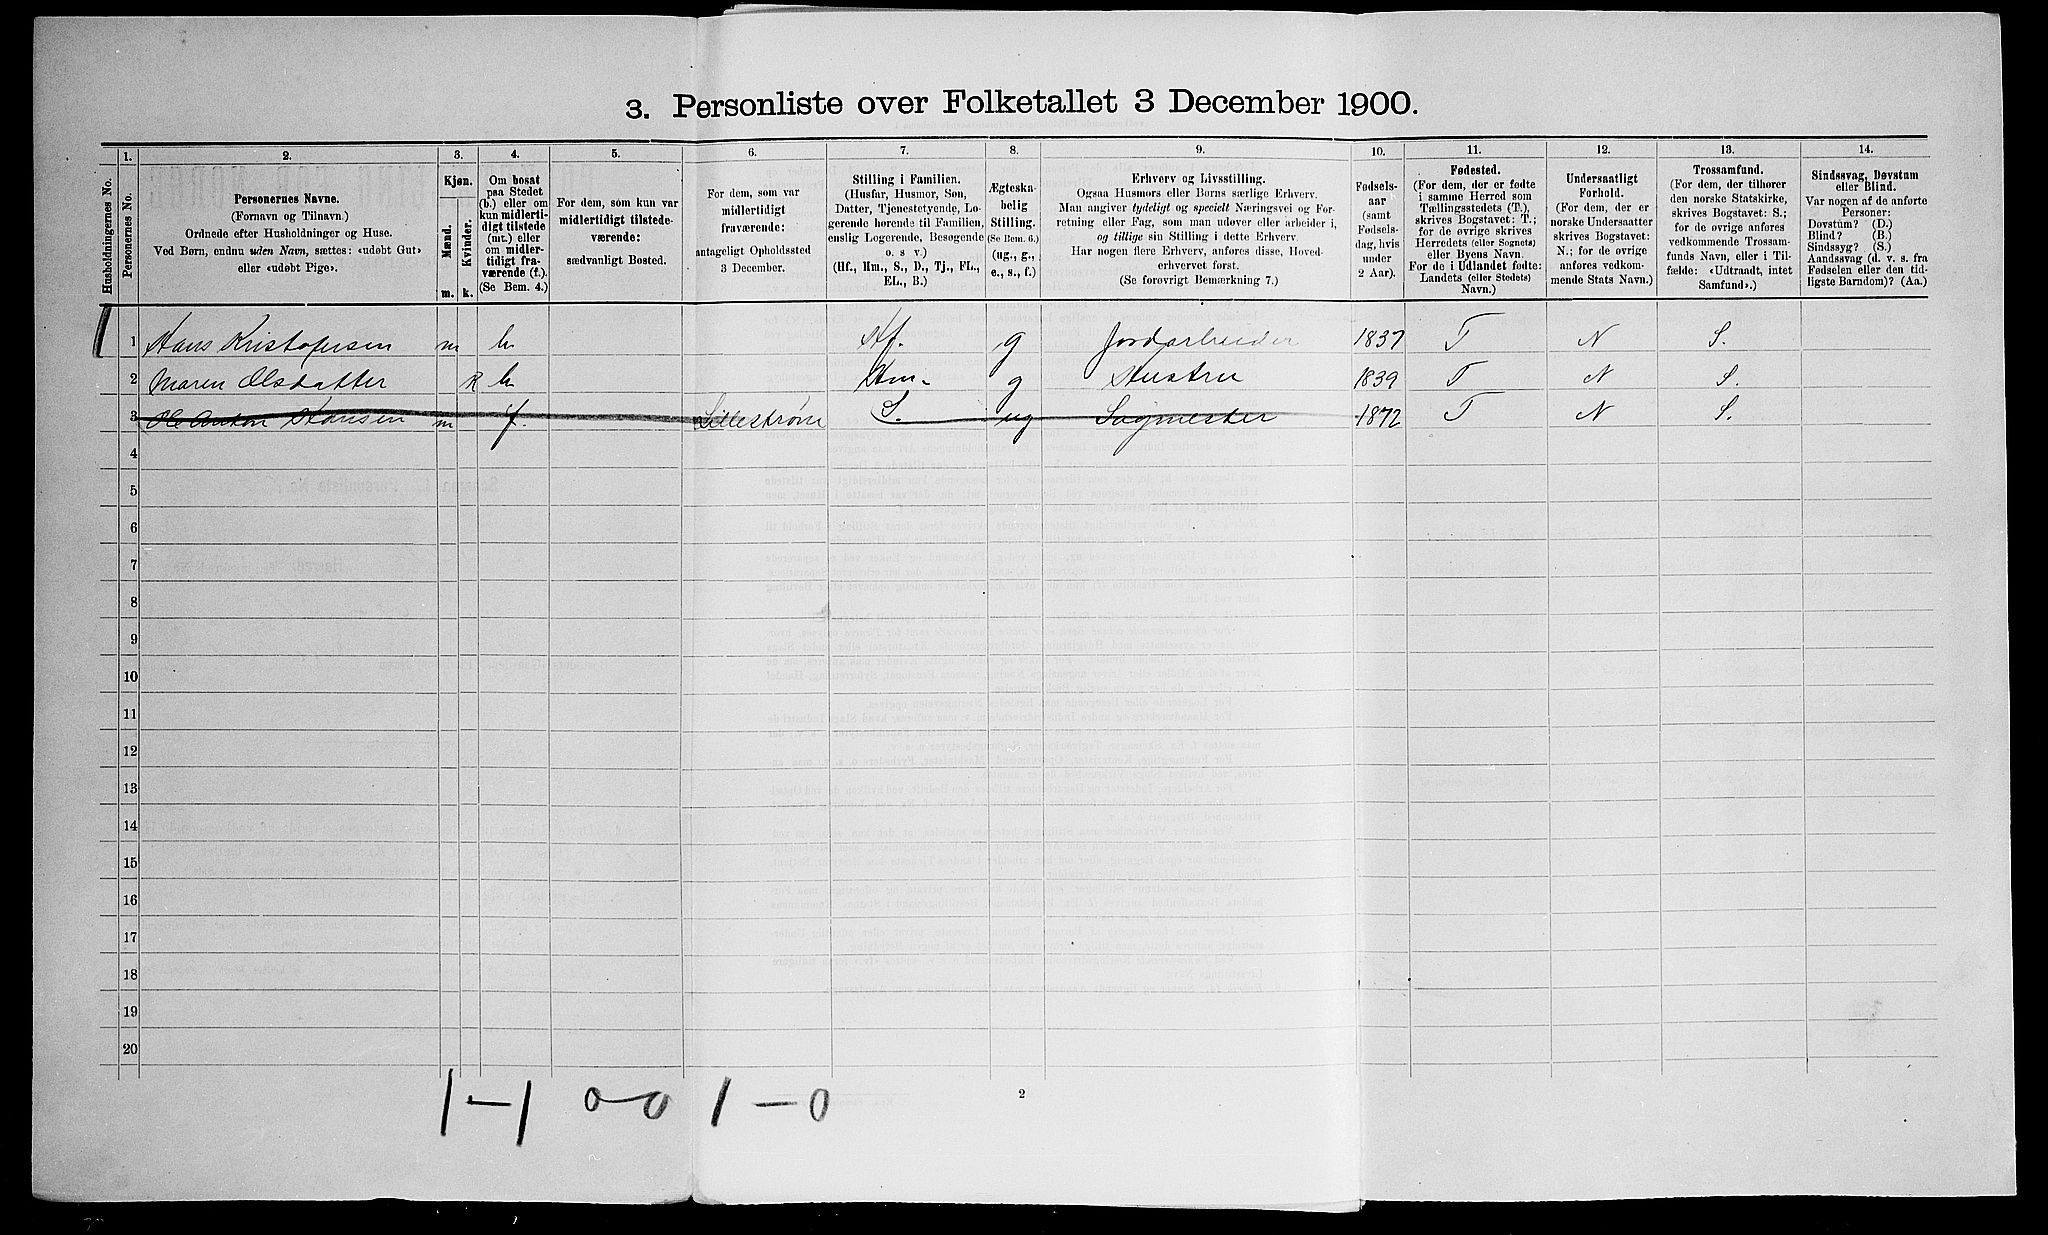 3. Personliste over Folketallet 3 December 1900.
Husholdningernes No.
1.
Personernes No.
2.
Personernes Navne.
(Fornavn og Tilnavn.)
Ordnede efter Husholdninger og Huse.
Ved Børn, endnu uden Navn, sættes: «udøbt Gut»
eller «udøbt Pige».
3.
Kjøn.
Mænd.
Kvinder.
m.
k.
4.
Om bosat
paa Stedet
(b.) eller om
kun midlerti-
digt tilstede
(mt.) eller
om midler-
tidigt fra-
værende (f.).
(Se Bem. 4.)
5.
For dem, som kun var
midlertidigt tilstede-
værende:
sædvanligt Bosted.
6.
For dem, som var
midlertidigt
fraværende:
antageligt Opholdssted
3 December.
7.
Stilling i Familien.
(Husfar, Husmor, Søn,
Datter, Tjenestetyende, Lo-
gerende hørende til Familien,
enslig Logerende, Besøgende
o. s v.)
(Hf., Hm., S., D., Tj., FL.,
EL., B.)
8.
Ægteska-
belig
Stilling.
(Se Bem. 6.)
(ug., g.,
e., s., f.)
9.
Erhverv og Livsstilling.
Ogsaa Husmors eller Børns særlige Erhverv.
Man angiver tydeligt og specielt Næringsvei og For-
retning eller Fag, som man udøver eller arbeider i,
og tillige sin Stilling i dette Erhverv.
Har nogen flere Erhverv, anføres disse, Hoved-
erhvervet først.
(Se forøvrigt Bemærkning 7.)
10.
Fødsels-
aar
(samt
Fødsels-
dag, hvis
under
2 Aar).
11.
Fødested.
(For dem, der er fødte
i samme Herred som
Tællingsstedets (T.),
skrives Bogstavet: T.;
for de øvrige skrives
Herredets (eller Sognets)
eller Byens Navn.
For de i Udlandet fødte:
Landets (eller Stedets)
Navn.)
12.
Undersaatligt
Forhold.
(For dem, der er
norske Undersaatter
skrives Bogstavet:
N.; for de øvrige
anføres vedkom-
mende Stats Navn.)
13.
Trossamfund.
(For dem, der tilhører
den norske Statskirke,
skrives Bogstavet: S.;
for de øvrige anføres
vedkommende Trossam-
funds Navn, eller i Til-
fælde: «Udtraadt, intet
Samfund».)
14.
Sindssvag, Døvstum
eller Blind.
Var nogen af de anførte
Personer:
Døvstum? (D.)
Blind? (B.)
Sindssyg? (S.)
Aandssvag (d. v. s. fra
Fødselen eller den tid-
ligste Barndom)? (Aa.)
1 1 Hans Kristofersen m b. Hf. g Jordarbeider 1837 T N S.
2 Maren Olsdatter k b. Hm. g Hustru 1839 T N S.
3 Ole Anton Hansen m f. Lillestrøm S. ug Sagmester 1872 T N S.
4
5
6
7
8
9
10
11
12
13
14
15
16
17
18
19
20
1-1 0-0 1-0
2